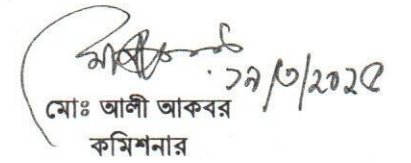 ১৯/৩/২০২৫
মোঃ আলী আকবর
কমিশনার